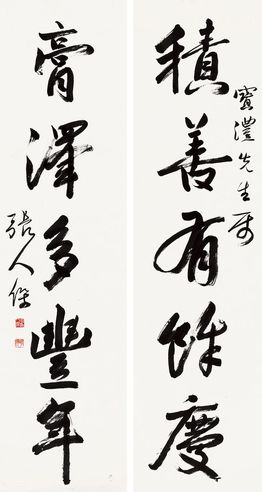 積善有餘慶
寶澧先生屬
膏澤多豐年
張人傑